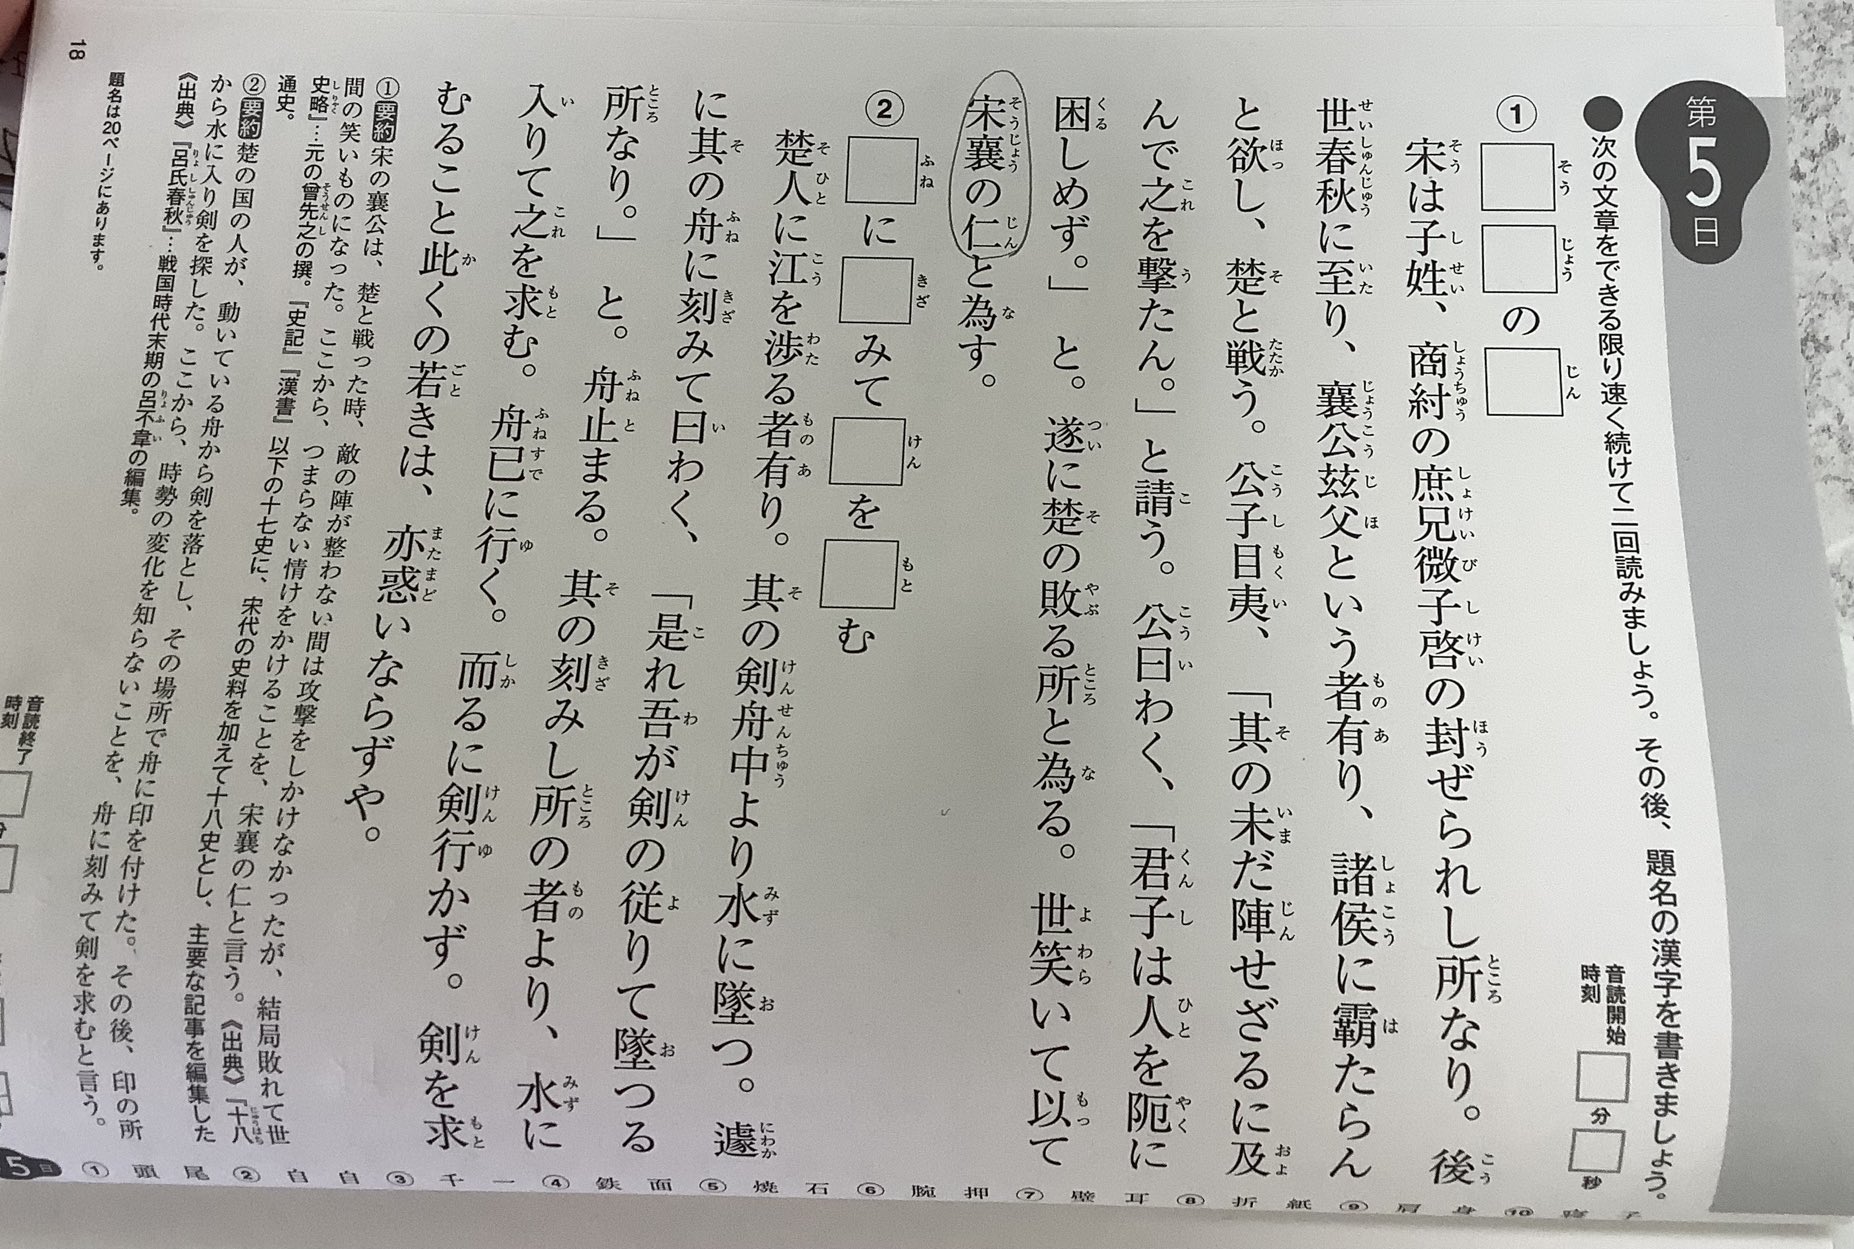 第5日
●次の文章をできる限り速く続けて二回読みましょう。その後、題名の漢字を書きましょう。
音読開始時刻 分 秒
① □□の□
宋は子姓、商紂の庶兄微子啓の封ぜられし所なり。後
世春秋に至り、襄公茲父という者有り、諸侯に覇たらん
と欲し、楚と戦う。公子目夷、「其の未だ陣せざるに及
んで之を撃たん。」と請う。公曰わく、「君子は人を阨に
困しめず。」と。遂に楚の敗る所と為る。世笑いて以て
宋襄の仁と為す。
② □に□みて□を□む
楚人に江を渉る者有り。其の剣舟中より水に墜つ。遽
に其の舟に刻みて曰わく、「是れ吾が剣の従りて墜つる
所なり。」と。舟止まる。其の刻みし所の者より、水に
入りて之を求む。舟已に行く。而るに剣行かず。剣を求
むること此くの若きは、亦惑いならずや。
①要約 宋の襄公は、楚と戦った時、敵の陣が整わない間は攻撃をしかけなかったが、結局敗れて世
間の笑いものになった。ここから、つまらない情けをかけることを、宋襄の仁と言う。《出典》『十八
史略』…元の曾先之の撰。『史記』『漢書』以下の十七史に、宋代の史料を加えて十八史とし、主要な記事を編集した
通史。
②要約 楚の国の人が、動いている舟から剣を落とし、その場所で舟に印を付けた。その後、印の所
から水に入り剣を探した。ここから、時勢の変化を知らないことを、舟に刻みて剣を求むと言う。
《出典》『呂氏春秋』…戦国時代末期の呂不韋の編集。
題名は20ページにあります。
18
音読終了時刻 分
5日 ①頭尾 ②自自 ③千一 ④鉄面 ⑤焼石 ⑥腕押 ⑦壁耳 ⑧折紙 ⑨肩身 ⑩